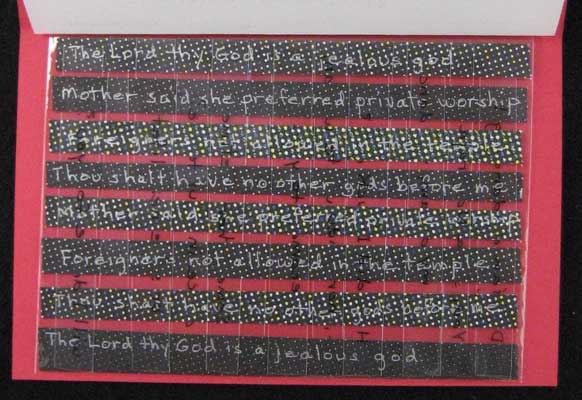 The Lord thy God is a jealous god
Mother said she preferred private worship
Foreigners not allowed in the temple
Thou shalt have no other gods before me
Mother said she preferred private worship
Foreigners not allowed in the temple
Thou shalt have no other gods before me
The Lord thy God is a jealous god